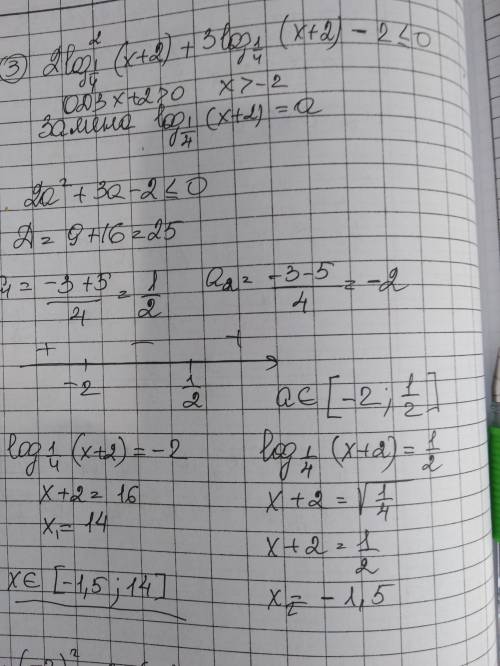 ③ 2log²_{1/4} (x+2) + 3log_{1/4} (x+2) − 2 ≤ 0
ОДЗ x+2>0   x>−2
Замена log_{1/4} (x+2) = a
2a² + 3a − 2 ≤ 0
Д = 9+16 = 25
a₁ = (−3+5)/4 = 1/2   a₂ = (−3−5)/4 = −2
+ − +
−2   1/2   a∈[−2; 1/2]
log_{1/4} (x+2) = −2   log_{1/4} (x+2) = 1/2
x+2 = 16   x+2 = √(1/4)
x₁ = 14   x+2 = 1/2
x∈[−1,5; 14]   x₂ = −1,5